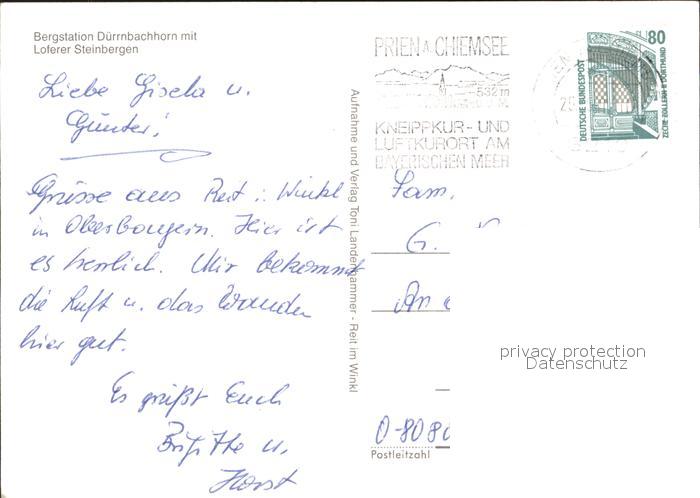 Bergstation Dürrnbachhorn mit
Loferer Steinbergen
Liebe Gisela u.
Günter!
Grüsse aus Reit i. Winkl
in Oberbayern. Hier ist
es herrlich. Mir bekommt
die Luft u. das Wandern
hier gut.
Es grüßt Euch
Brigitte u.
Horst
Aufnahme und Verlag Toni Landenhammer - Reit im Winkl
PRIEN A. CHIEMSEE
532 m
KNEIPPKUR- UND
LUFTKURORT AM
BAYERISCHEN MEER
80
DEUTSCHE BUNDESPOST
ZECHE ZOLLERN II DORTMUND
Fam.
G.
An
O-8080
Postleitzahl
privacy protection
Datenschutz